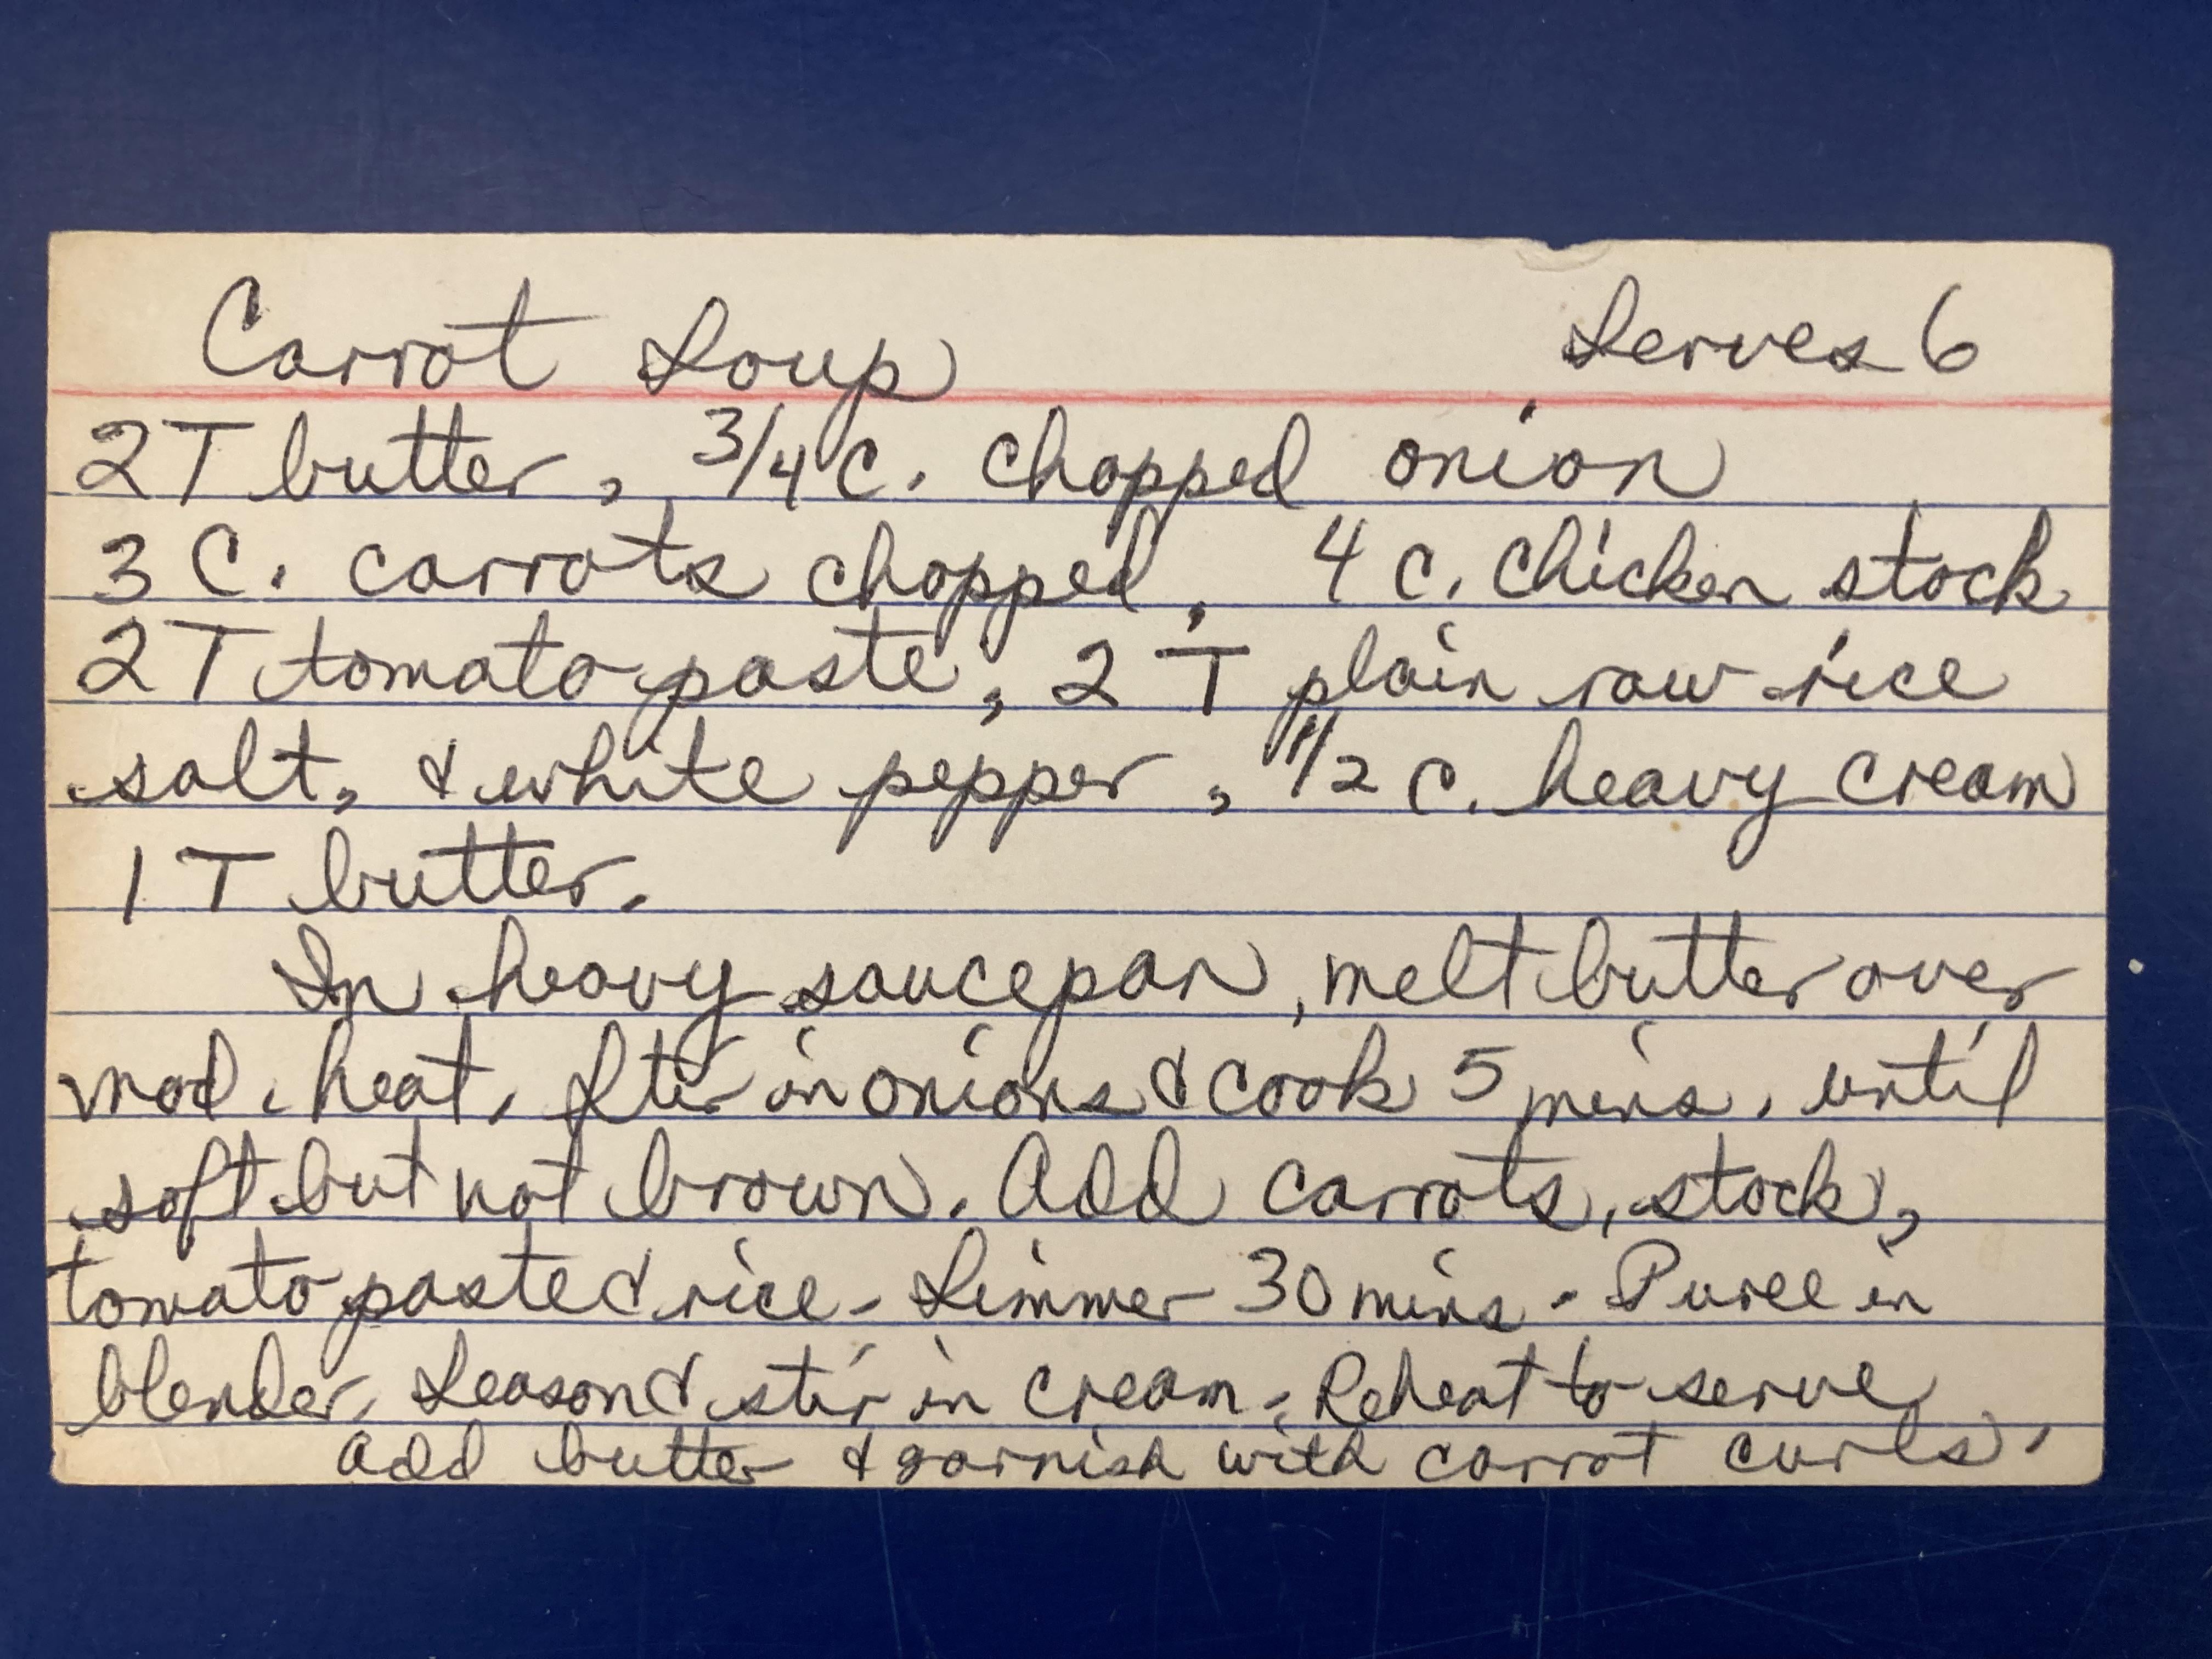 Carrot Soup Serves 6
2 T butter, 3/4 C. chopped onion
3 C. carrots chopped, 4 c. chicken stock
2 T tomato paste, 2 T plain raw rice
salt, & white pepper, 1/2 c. heavy cream
1 T butter.
In heavy saucepan, melt butter over
mod. heat. Stir in onions & cook 5 mins. until
soft but not brown. Add carrots, stock,
tomato paste & rice - Simmer 30 mins - Puree in
blender. Season & stir in cream - Reheat to serve
add butter & garnish with carrot curls.